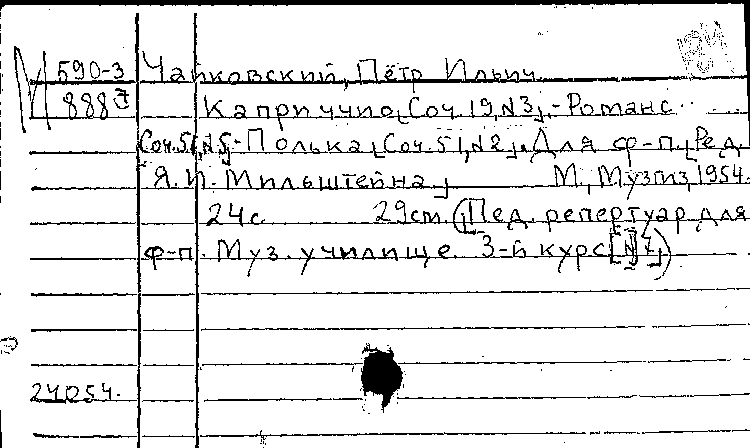 М 590-3 Чайковский, Пётр Ильич
888 Каприччио[Соч. 19, №3].-Романс
Соч. 51, №5]-Полька[Соч. 51, №2]. Для ф-п.[Ред.
Я. И. Мильштейна] М., Музгиз, 1954.
24с. 29см. ([Пед. репертуар для
ф-п. Муз. училище. 3-й курс[№7])
24054.